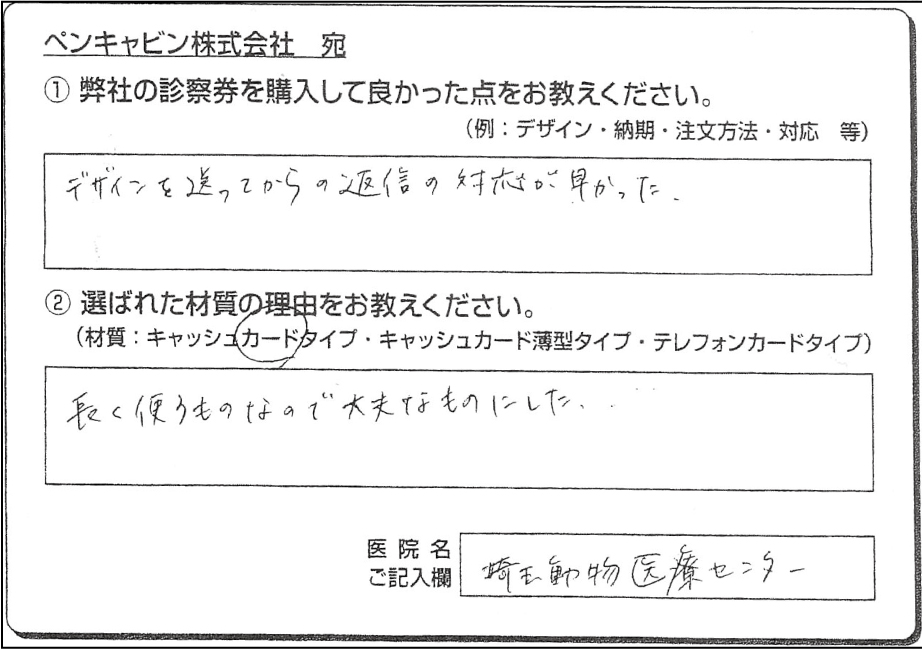 ペンキャビン株式会社　宛
① 弊社の診察券を購入して良かった点をお教えください。
（例：デザイン・納期・注文方法・対応　等）
デザインを送ってからの返信の対応が早かった.
② 選ばれた材質の理由をお教えください。
（材質：キャッシュカードタイプ・キャッシュカード薄型タイプ・テレフォンカードタイプ）
長く使うものなので大夫なものにした.
医 院 名
ご記入欄
埼玉動物医療センター